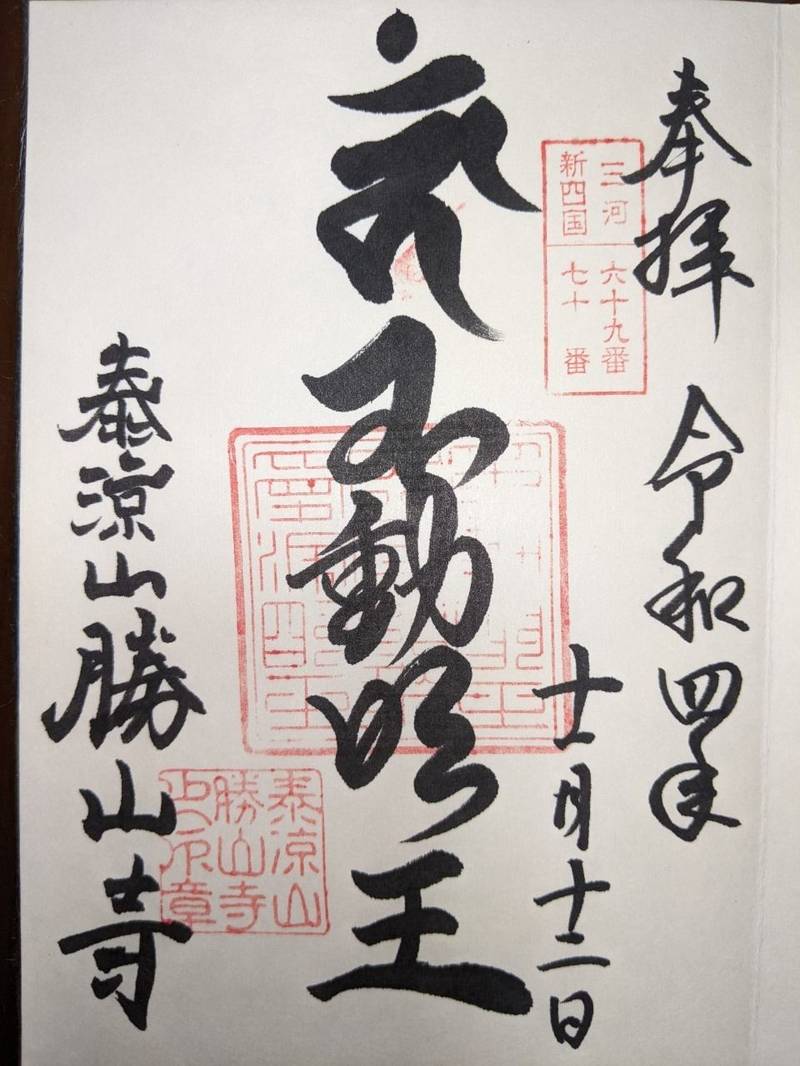 奉拝
令和四年
十一月十二日
三河
新四国
六十九番
七十番
不動明王
泰涼山勝山寺
泰涼山
勝山寺